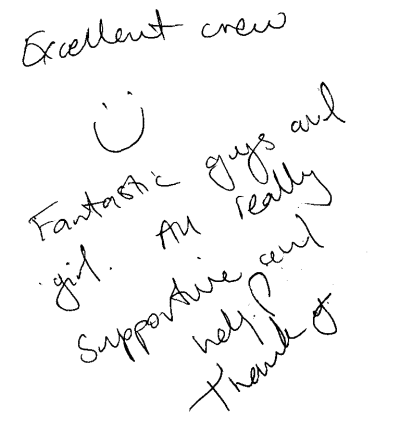 Excellent crew
Fantastic guys and
girl. All really
supportive and
help.
Thank